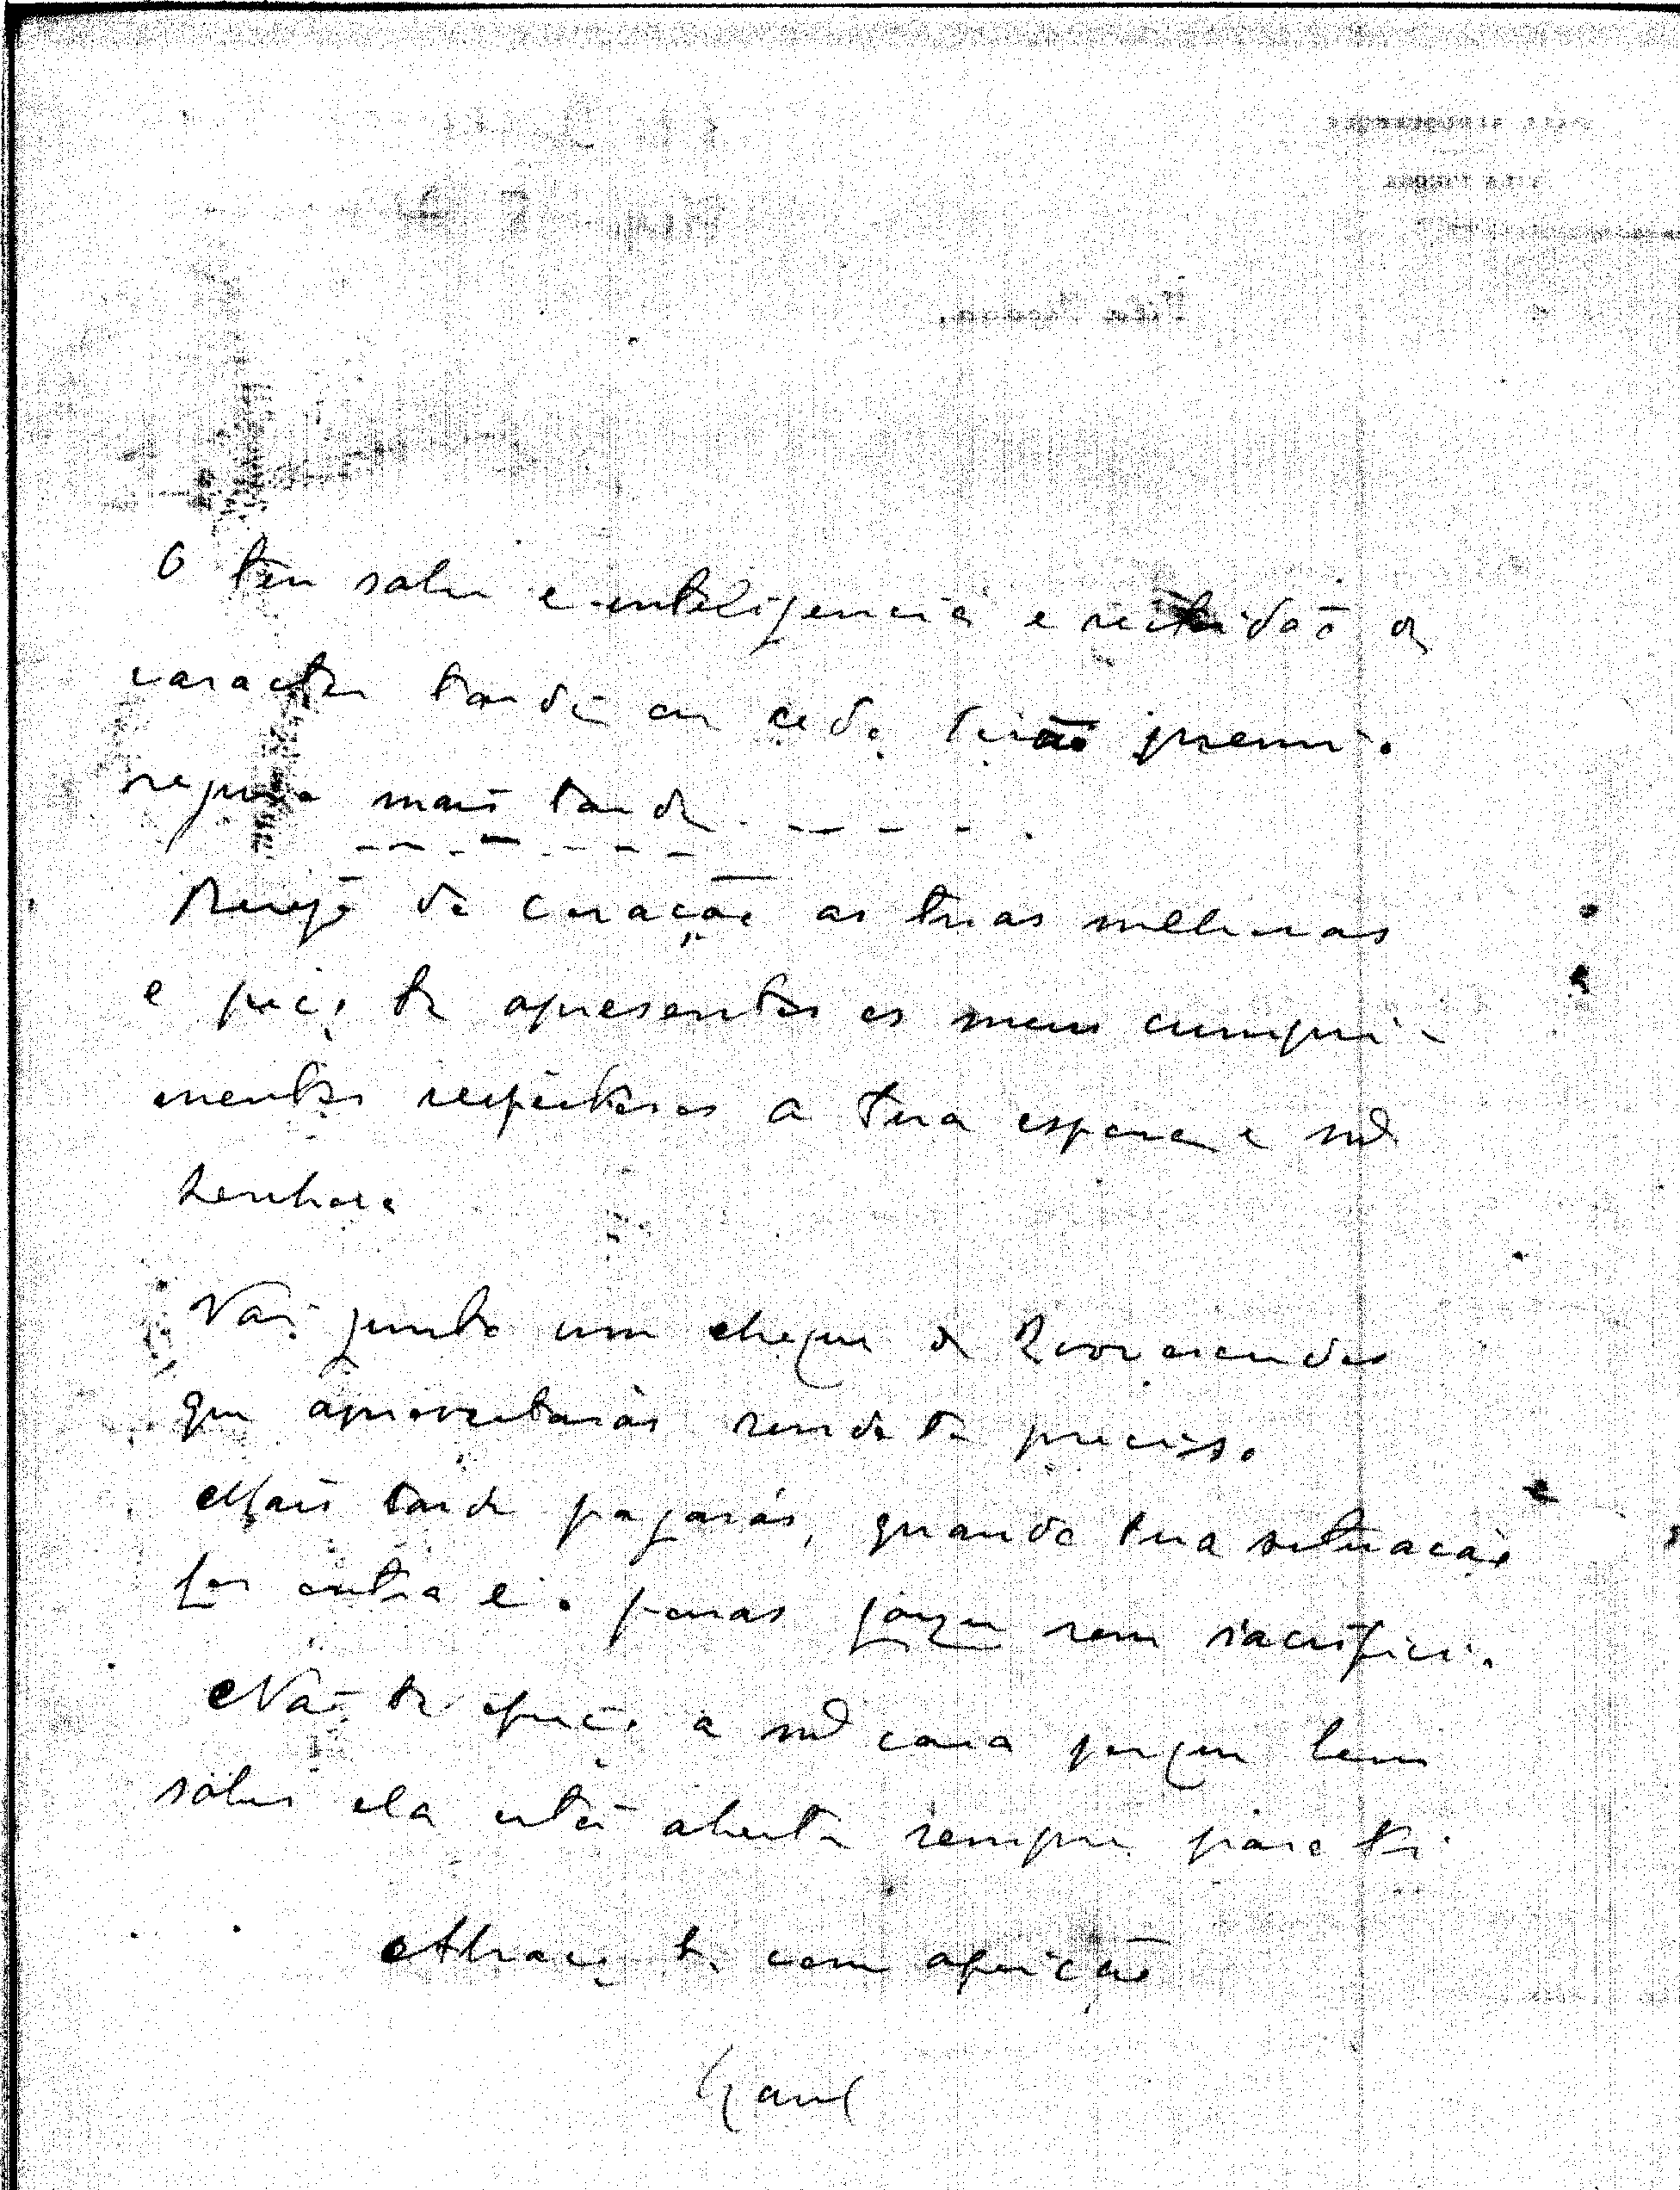 O teu saber e inteligencia e rectidão de
caracter tarde ou cedo terão premio
mais tarde. - - - - .
Desejo de coração as tuas melhoras
e peço te apresentes os meus cumpri-
mentos respeitosos a tua esposa e mª
senhora
Vai junto um cheque de escudos
que aproveitarás sendo te preciso.
Mais tarde pagarás, quando tua situação
for outra e o possas fazer sem sacrificio.
Não te ofereço a mª casa porque bem
sabes ela está aberta sempre para ti.
Abraço te com afeição
Raul